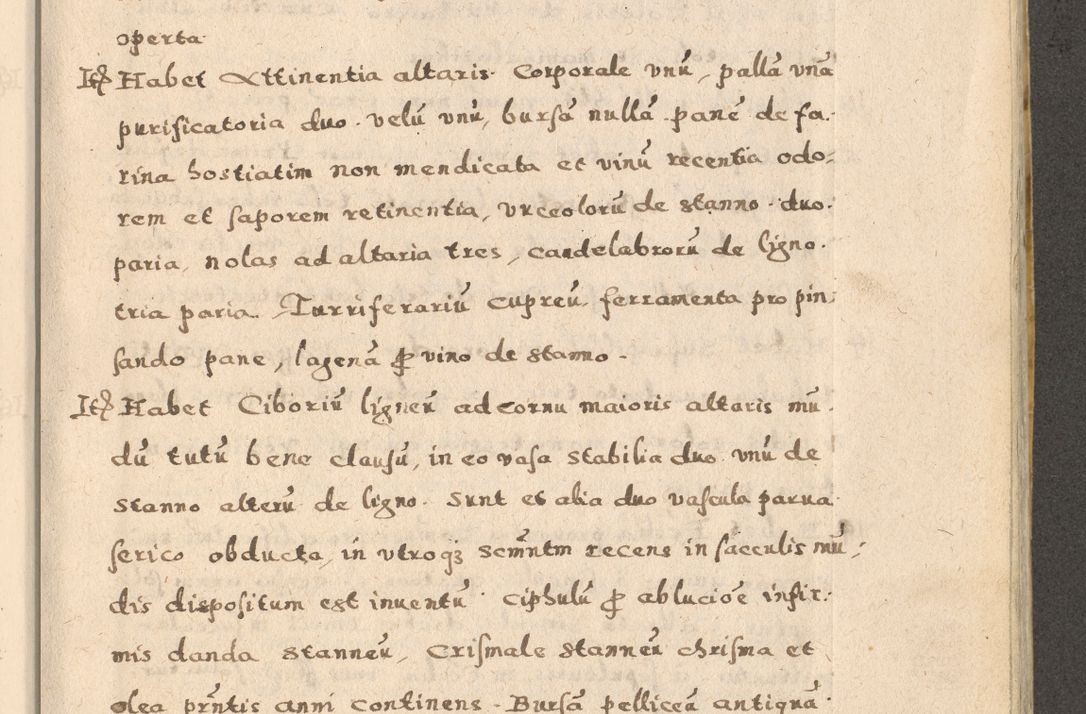 operta
Itꝫ Habet Attinentia altaris. Corporale vnū, pallā vnā
purificatoria duo. velū vnū, bursā nullā. panē de fa-
rina hostiatim non mendicata et vinū recentia odo-
rem et saporem retinentia, vrceolorū de stanno duo
paria, nolas ad altaria tres, candelabrorū de ligno.
tria paria. Turriferariū cupreū ferramenta pro pin-
sando pane, lagenā ꝓ vino de stanno.
Itꝫ Habet Ciboriū ligneū ad cornu maioris altaris mū
dū tutū bene clausū, in eo vasa stabilia duo vnū de
stanno alterū de ligno. Sunt et alia duo vascula parua
serico obducta, in vtroqꝫ scm̄ntm recens in sacculis mū-
dis dispositum est inuentū. Ciphulū ꝓ ablucioē infir-
mis danda stanneū, Crismale stanneū chrisma et
olea prn̄tis anni continens. Bursā pelliceā antiquā